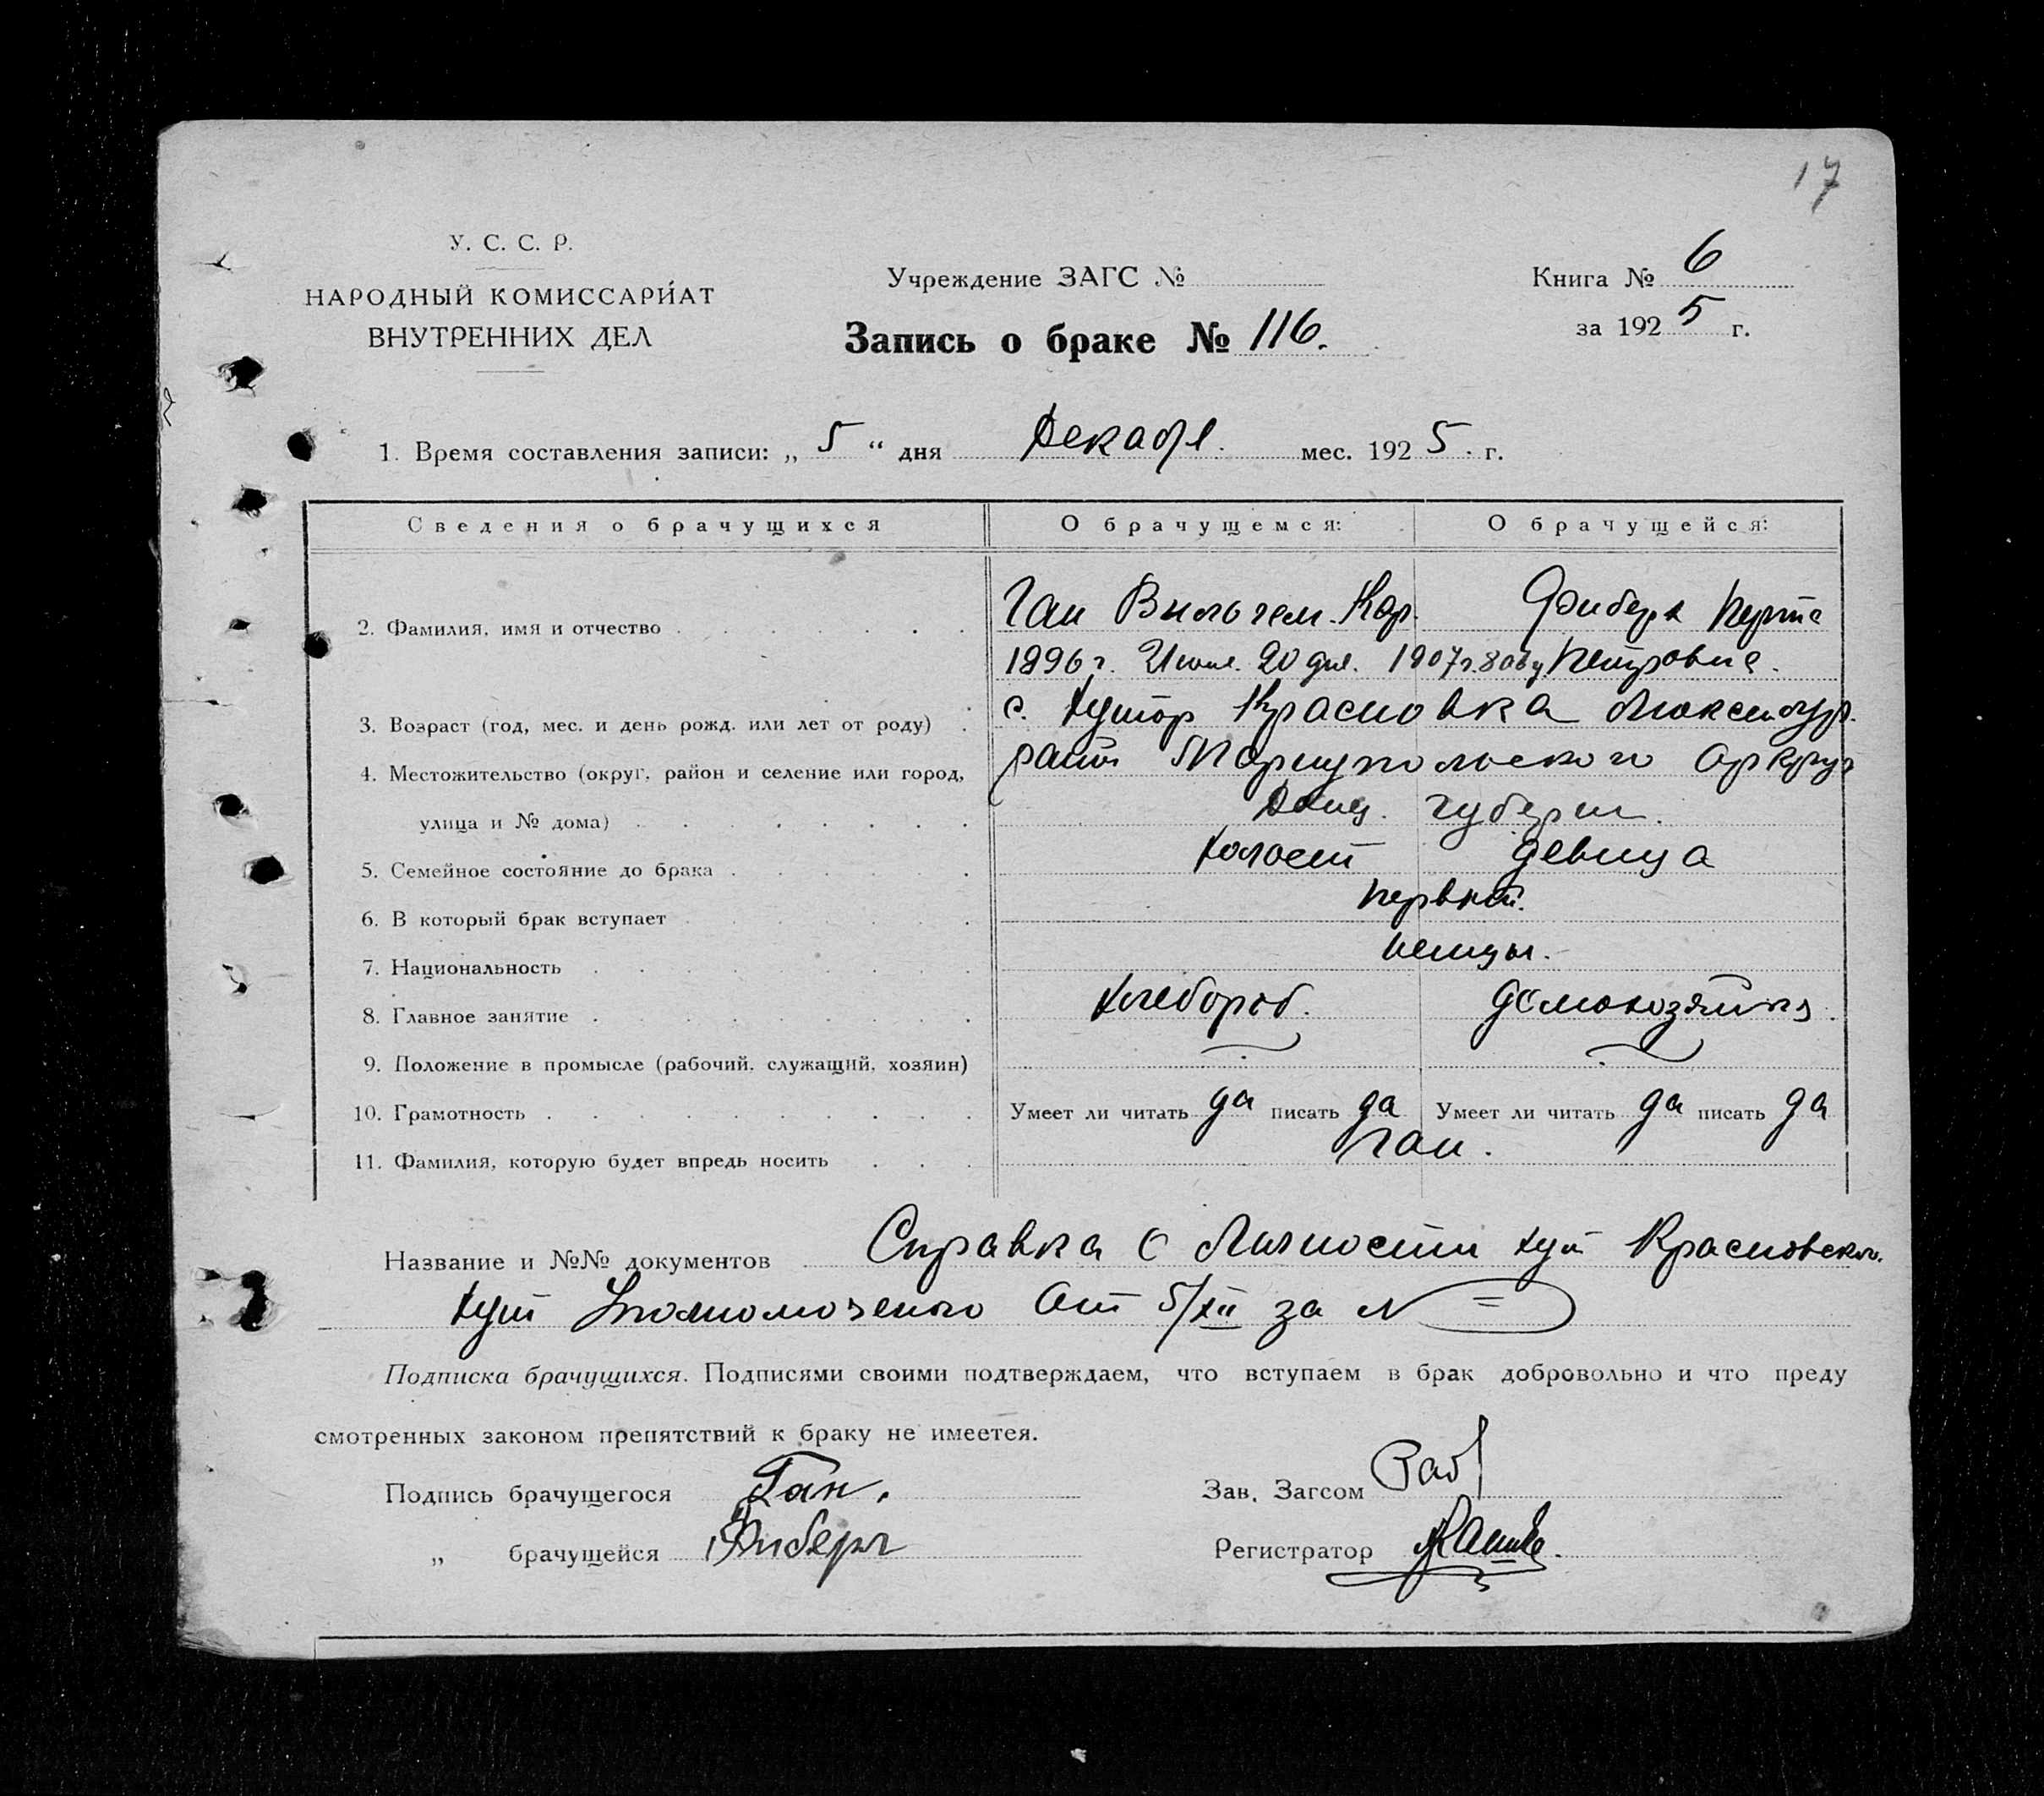 17
У. С. С. Р.
НАРОДНЫЙ КОМИССАРИАТ
ВНУТРЕННИХ ДЕЛ
Учреждение ЗАГС №
Книга № 6
за 1925 г.
Запись о браке № 116.
1. Время составления записи: „ 5 “ дня Декабя. мес. 1925 г.
Сведения о брачущихся О брачущемся: О брачущейся:
2. Фамилия, имя и отчество Ган Вильгем. Кар.
1896 г. Июня. 20 дня. 1907 г. Петровна.
3. Возраст (год, мес. и день рожд. или лет от роду) с. Хутор Красновка Люксембур.
4. Местожительство (округ, район и селение или город, район Мариупольского Округа
улица и № дома) Донец. губерни.
5. Семейное состояние до брака холост девица
6. В который брак вступает первый.
7. Национальность немцы.
8. Главное занятие хлебороб. домохозяйка.
9. Положение в промысле (рабочий, служащий, хозяин)
10. Грамотность Умеет ли читать да писать да Умеет ли читать да писать да
11. Фамилия, которую будет впредь носить Ган.
Название и №№ документов Справка о Личности хут Красновского.
хут Уполномоченого От 5/XII за N =
Подписка брачущихся. Подписями своими подтверждаем, что вступаем в брак добровольно и что преду
смотренных законом препятствий к браку не имеется.
Подпись брачущегося Ган.
Зав. Загсом
„ брачущейся
Регистратор